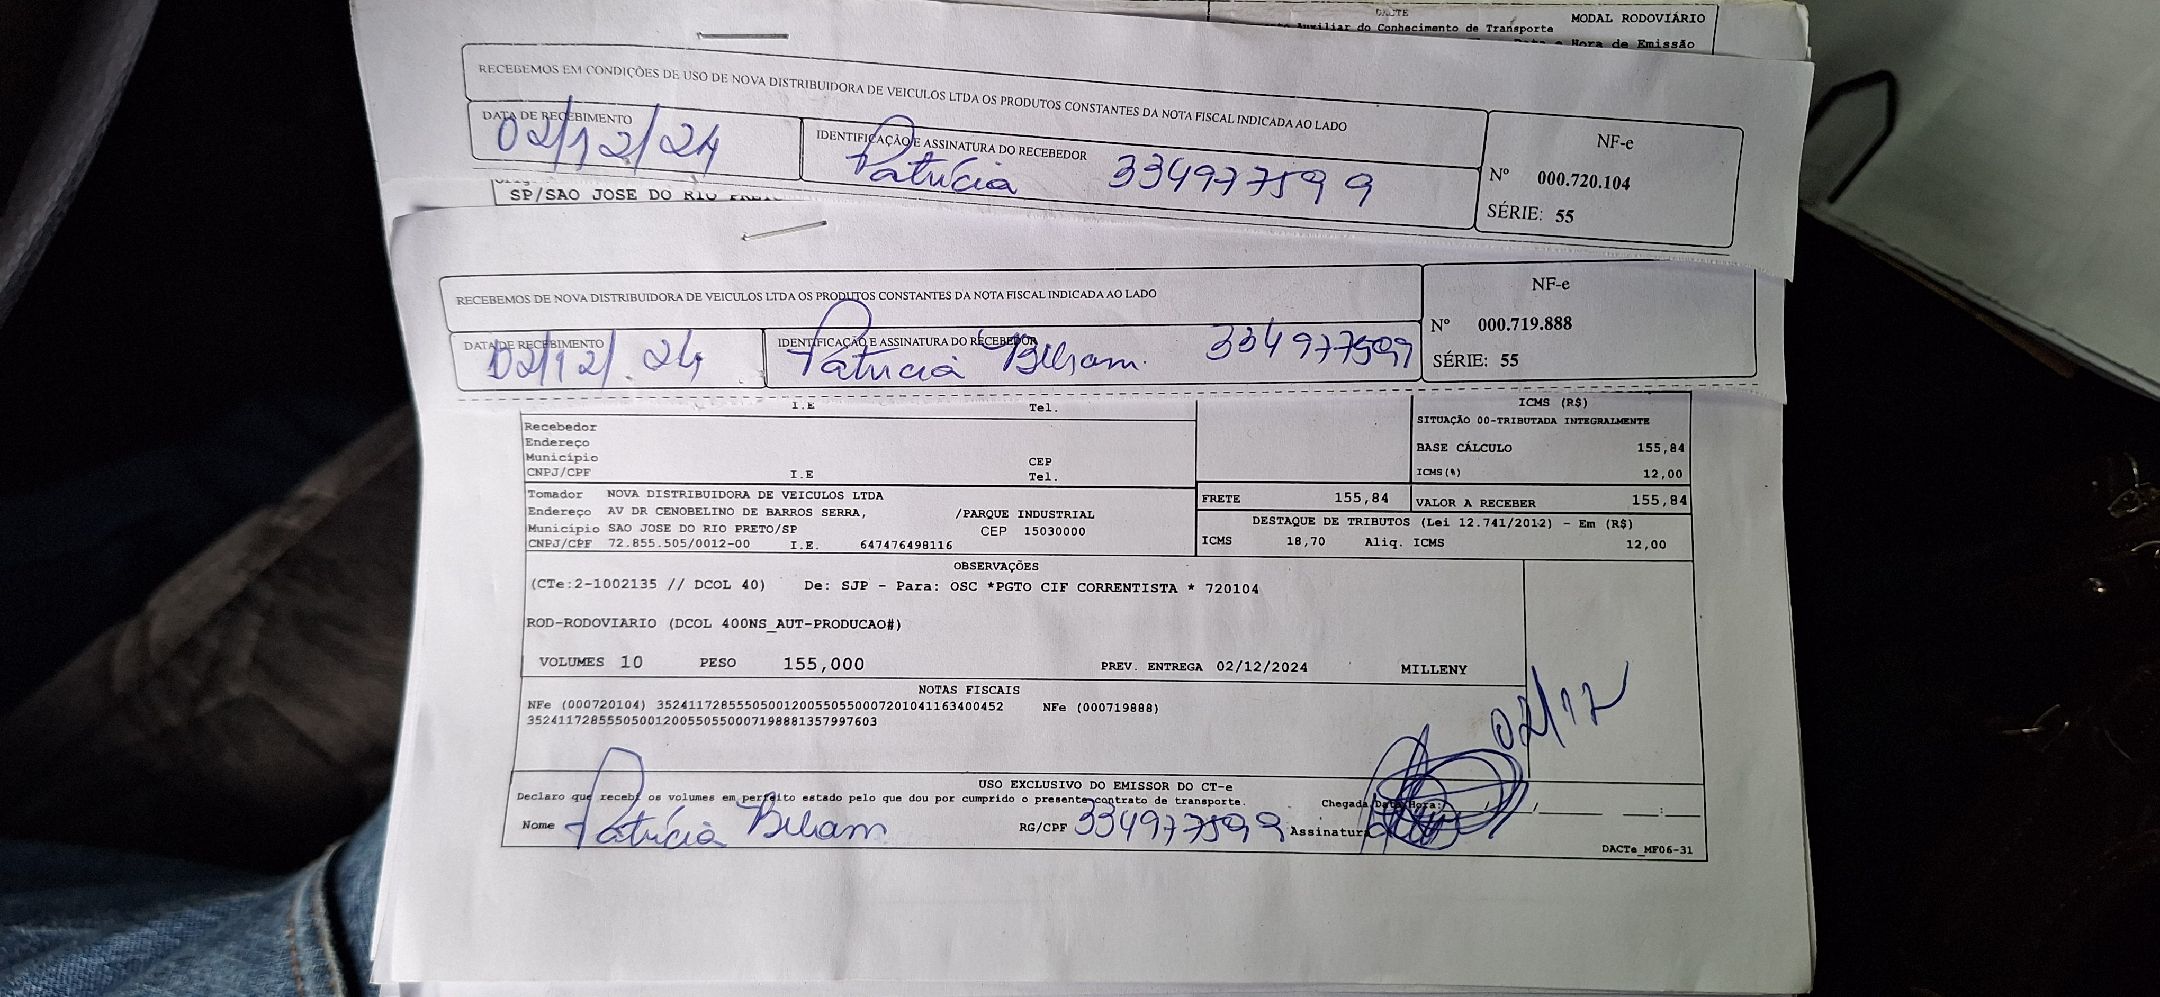 DACTE
MODAL RODOVIÁRIO
Auxiliar do Conhecimento de Transporte
Hora de Emissão
RECEBEMOS EM CONDIÇÕES DE USO DE NOVA DISTRIBUIDORA DE VEICULOS LTDA OS PRODUTOS CONSTANTES DA NOTA FISCAL INDICADA AO LADO
DATA DE RECEBIMENTO
02/12/24
IDENTIFICAÇÃO E ASSINATURA DO RECEBEDOR
Patrícia 334977599
NF-e
Nº 000.720.104
SÉRIE: 55
SP/SAO JOSE DO RIO
RECEBEMOS DE NOVA DISTRIBUIDORA DE VEICULOS LTDA OS PRODUTOS CONSTANTES DA NOTA FISCAL INDICADA AO LADO
DATA DE RECEBIMENTO
02/12/.24
IDENTIFICAÇÃO E ASSINATURA DO RECEBEDOR
Patricia 334977599
NF-e
Nº 000.719.888
SÉRIE: 55
I.E Tel.
Recebedor
Endereço
Município CEP
CNPJ/CPF I.E Tel.
ICMS (R$)
SITUAÇÃO 00-TRIBUTADA INTEGRALMENTE
BASE CÁLCULO 155,84
ICMS(%) 12,00
Tomador NOVA DISTRIBUIDORA DE VEICULOS LTDA
Endereço AV DR CENOBELINO DE BARROS SERRA, /PARQUE INDUSTRIAL
Município SAO JOSE DO RIO PRETO/SP CEP 15030000
CNPJ/CPF 72.855.505/0012-00 I.E. 647476498116
FRETE 155,84 VALOR A RECEBER 155,84
DESTAQUE DE TRIBUTOS (Lei 12.741/2012) - Em (R$)
ICMS 18,70 Aliq. ICMS 12,00
OBSERVAÇÕES
(CTe:2-1002135 // DCOL 40) De: SJP - Para: OSC *PGTO CIF CORRENTISTA * 720104
ROD-RODOVIARIO (DCOL 400NS_AUT-PRODUCAO#)
VOLUMES 10 PESO 155,000 PREV. ENTREGA 02/12/2024 MILLENY
NOTAS FISCAIS
NFe (000720104) 35241172855505001200550550007201041163400452 NFe (000719888)
35241172855505001200550550007198881357997603
02/12
USO EXCLUSIVO DO EMISSOR DO CT-e
Declaro que recebi os volumes em perfeito estado pelo que dou por cumprido o presente contrato de transporte. Chegada Data/Hora: / / :
Nome Patrícia RG/CPF 334977599 Assinatura
DACTe_MF06-31